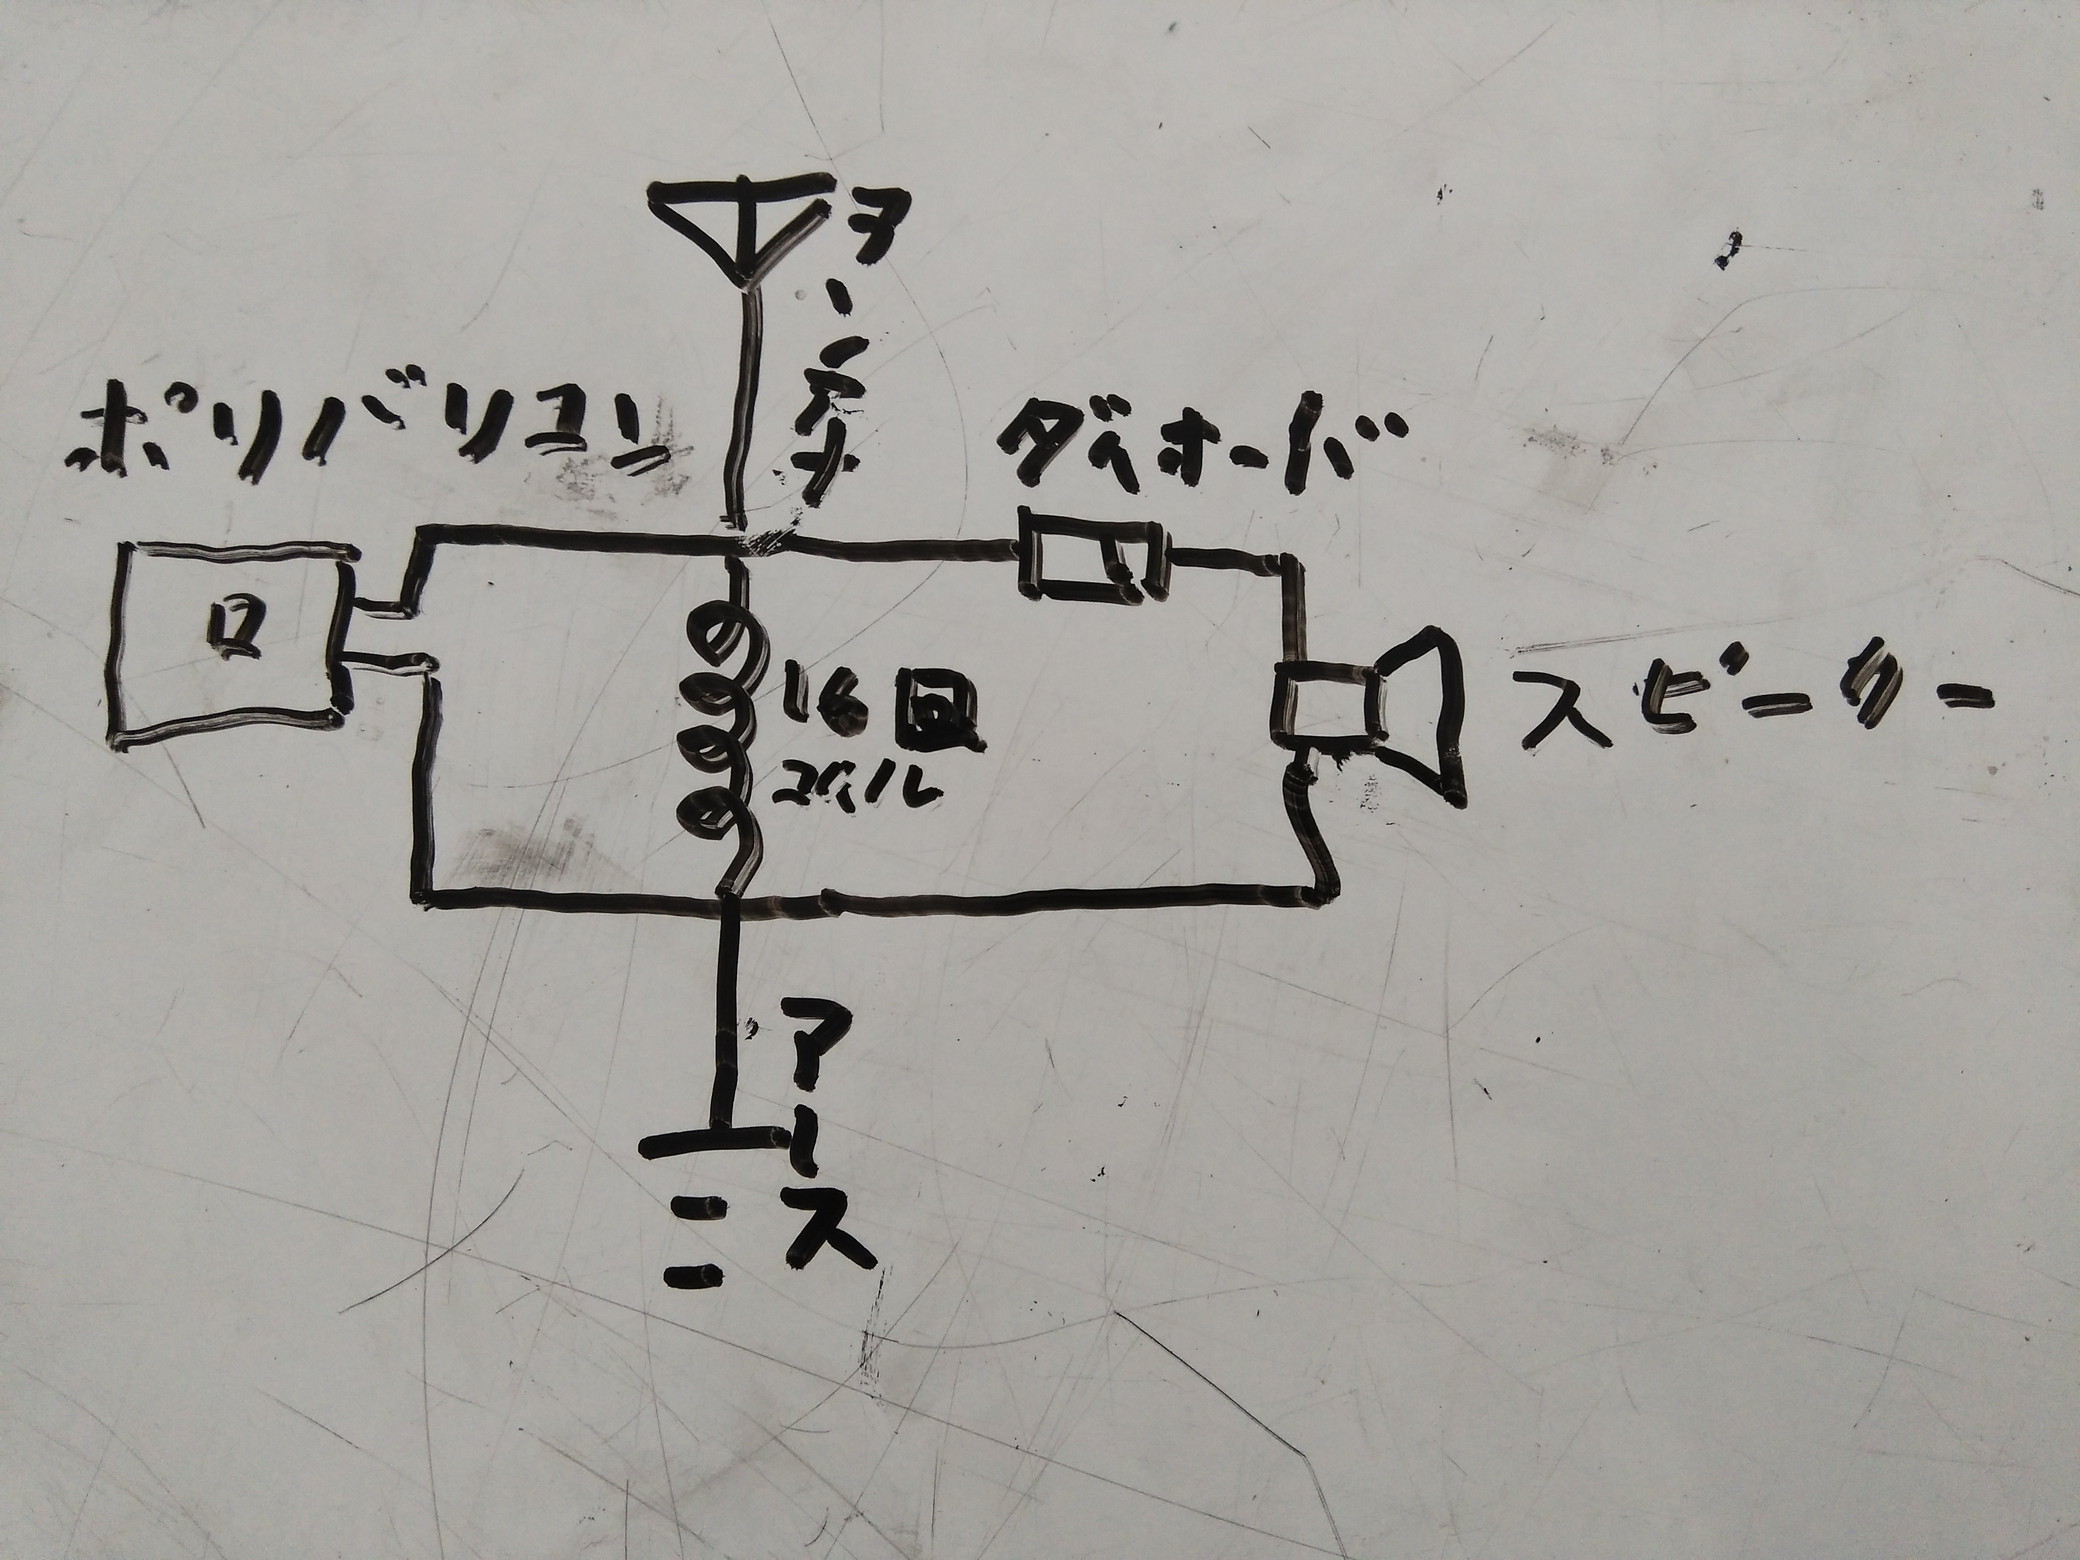 アンテナ
ポリバリコン
ダイオード
16回
コイル
スピーカー
アース